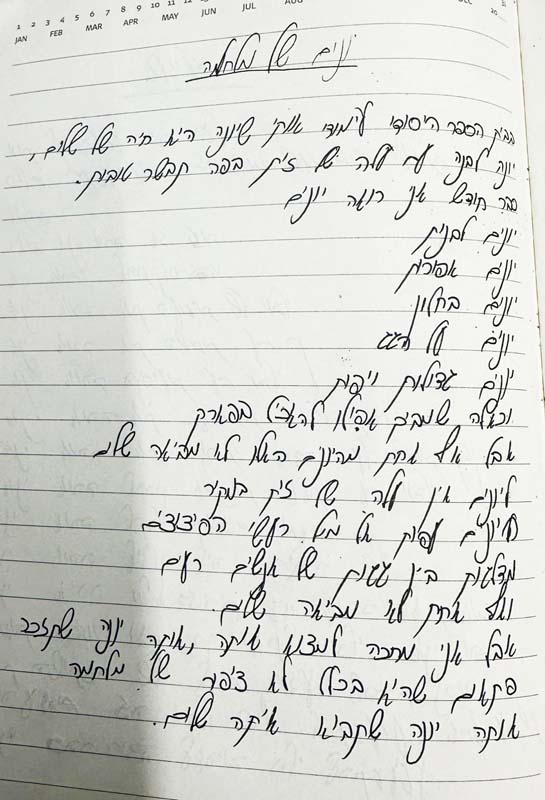 1 2 3 4 5 6 7 8 9 10 11
JAN FEB MAR APR MAY JUN JUL AUG
20
יונים של מלחמה
בבית הספר היסודי לימדו אותי שיונה היא חיה של שלום,
יונה לבנה עם עלה של זית בפה תבשר טובות.
כבר חודש אני רואה יונים
יונים לבנות
יונים אפורות
יונים בחלון
יונים על הגג
יונים גדולות ויפות
וכאלה אפילו להאכיל בפארק
אבל אף אחת מהיונים האלו לא מביאה שלום
ליונים אין עלה של זית במקור
היונים עפות אל מול רעשי הפיצוצים
מדלגות בין גגות של אנשים רעים
ואף אחת לא מביאה שלום.
אבל אני מחכה למצוא אותה, אותה יונה שתזכר
פתאום שהיא בכלל לא ציפור של מלחמה
אותה יונה שתביא איתה שלום.